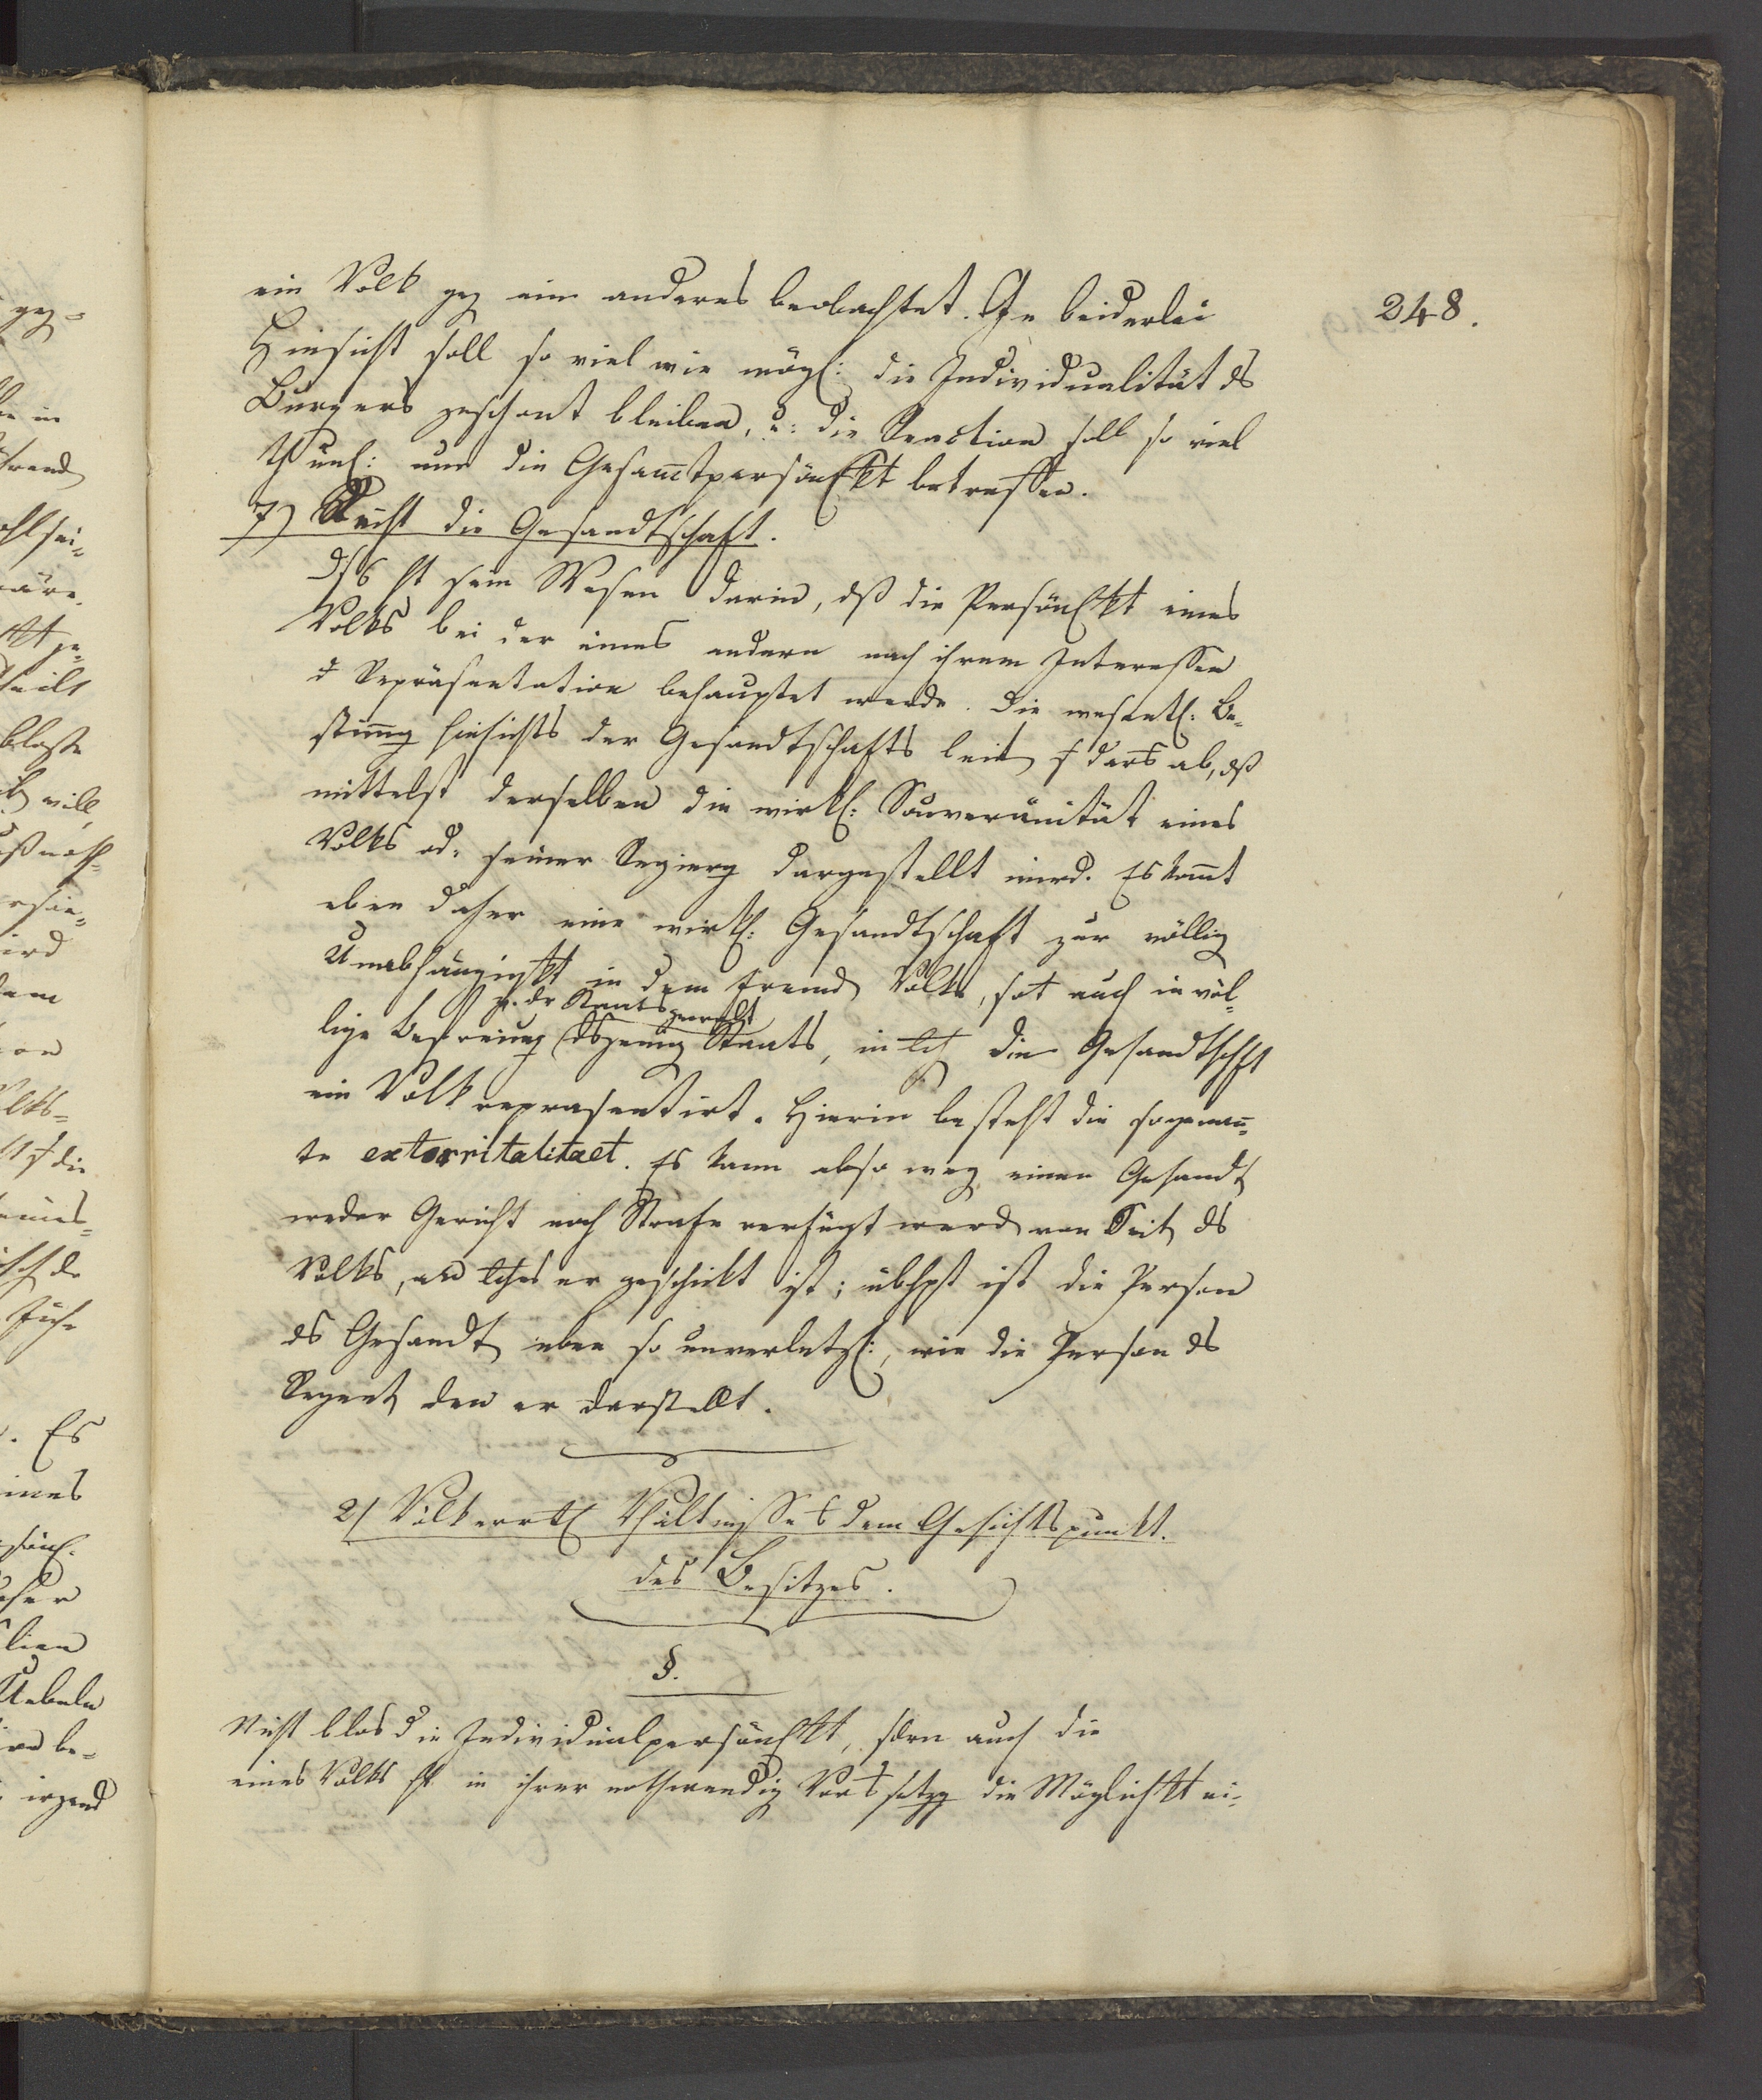 248.
ein Volk geg ein anderes beobachtet. In beiderlei
Hinsicht soll so viel wie mögl: die Individualität ds
Burgers geschont bleiben, u: die Reaction soll so viel
thunl: nur die Gesam̄tpersönlkt betreffen.
7) Recht die Gesandtschaft.
Ds ht sein Wesen darin, dß die Persönlkt eines
Volks bei der eines andern nach ihrem Interessen
Repräsentation behauptet werde. Die wesentl: Be-
stim̄ng hinsichts der Gesandtschafts leit s dars ab, dß
mittelst derselben die wirkl: Souveränität eines
Volks od. seiner Regierg dargestellt wird. Es kom̄t
eben daher eine wirkl: Gesandtschaft zur völlig
Unabhängigkt in dem fremd Volke, sot auch in völ-
v. dr Staatsgewalt
lige Befreiung dsjenig Staats, in lch die Gesandtschft
ein Volk reprasentirt. Hierin besteht die sogenan̄-
te exterritalitaet. Es kann also weg einen Gesandt
weder Gericht noch Strafe verfügt werd von Seit ds
Volks, an lches er geschickt ist; übhpt ist die Person
ds Gesandt eben so unverletzl:, wie die Person ds
Regent den er darstellt.
2/ Völkerrtl Vhältnisse s dem Gesichtspunkt.
des Besitzes.
§.
Nicht blos die Individualpersönlkt, sdrn auch die
eines Volks ht in ihrer nothwendig Vors setzg die Möglichkt ei-